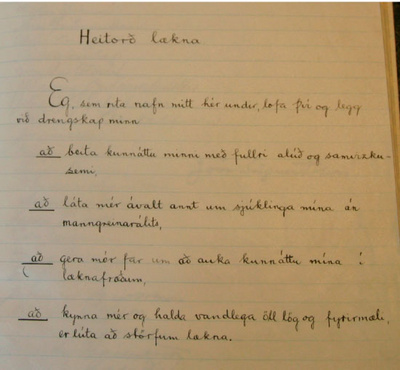 Heitorð lækna
Eg, sem rita nafn mitt hér undir, lofa því og legg
við drengskap minn
að beita kunnáttu minni með fullri alúð og samvizku-
semi,
að láta mér ávalt annt um sjúklinga mína án
manngreinarálits,
að gera mér far um að auka kunnáttu mína í
læknafræðum,
að kynna mér og halda vandlega öll lög og fyrirmæli,
er lúta að störfum lækna.